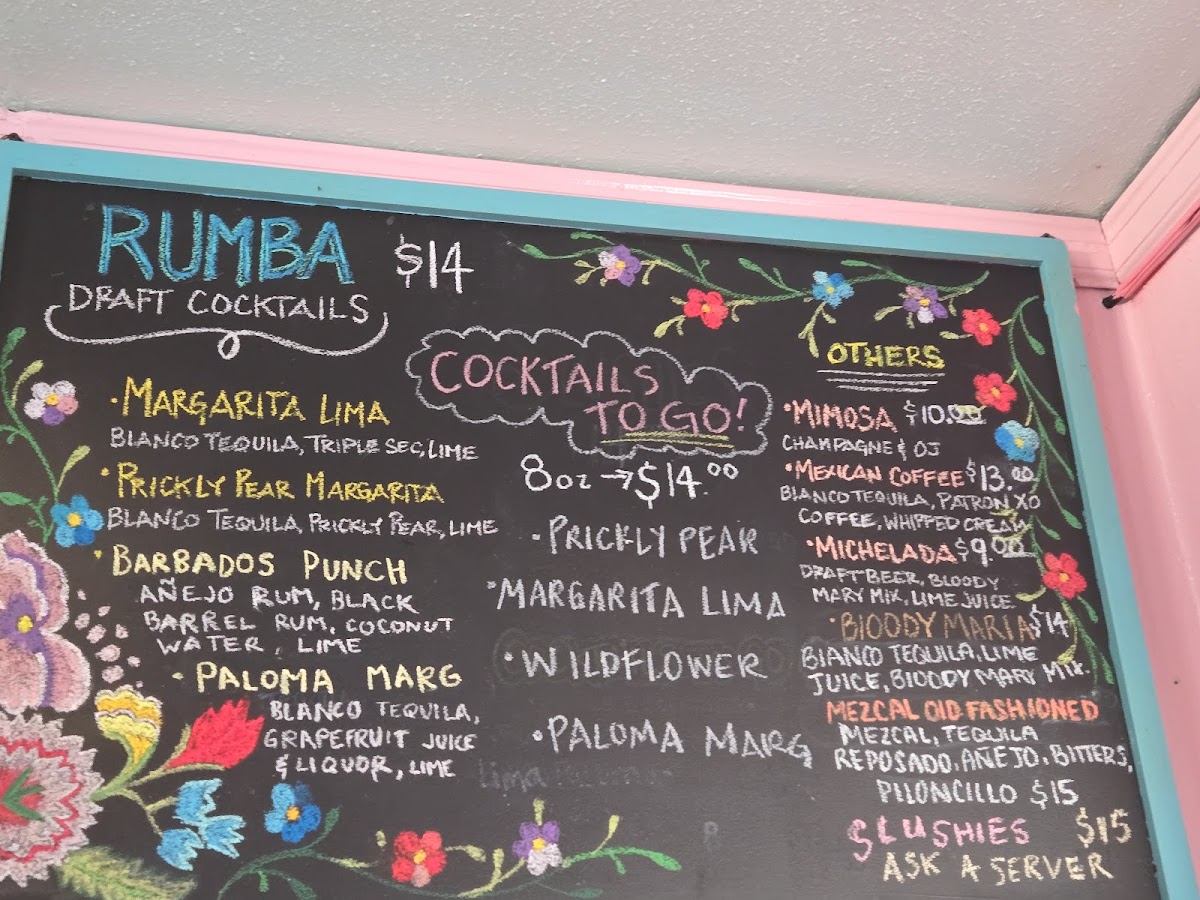 RUMBA $14
DRAFT COCKTAILS
·MARGARITA LIMA
BLANCO TEQUILA, TRIPLE SEC, LIME
·PRICKLY PEAR MARGARITA
BLANCO TEQUILA, PRICKLY PEAR, LIME
·BARBADOS PUNCH
AÑEJO RUM, BLACK
BARREL RUM, COCONUT
WATER, LIME
·PALOMA MARG
BLANCO TEQUILA,
GRAPEFRUIT JUICE
& LIQUOR, LIME
COCKTAILS
TO GO!
8oz → $14.00
·PRICKLY PEAR
·MARGARITA LIMA
·WILDFLOWER
·PALOMA MARG
Lima
OTHERS
·MIMOSA $10.00
CHAMPAGNE & OJ
·MEXICAN COFFEE $13.00
BLANCO TEQUILA, PATRON XO
COFFEE, WHIPPED CREAM
·MICHELADA $9.00
DRAFT BEER, BLOODY
MARY MIX, LIME JUICE
·BLOODY MARIA $14
BLANCO TEQUILA, LIME
JUICE, BLOODY MARY MIX.
MEZCAL OLD FASHIONED
MEZCAL, TEQUILA
REPOSADO, AÑEJO, BITTERS,
PILONCILLO $15
SLUSHIES $15
ASK A SERVER